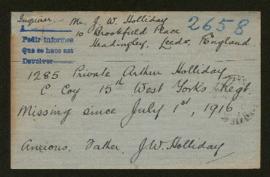 Enquirer Mr J. W. Holliday
2658
10 Brookfield Place
Headingley, Leeds, England
Pedir informes
Que se hac not
Devolver
1285 Private Arthur Holliday
C Coy 15th West Yorks Regt.
Missing since July 1st, 1916
Anxious. Father, J.W. Holliday